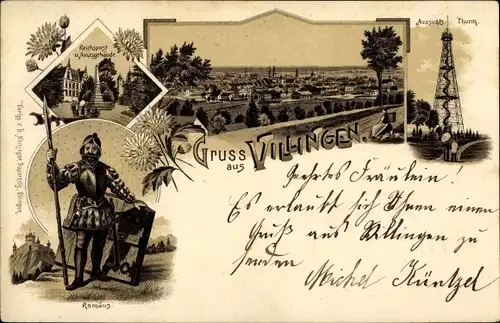 Reichspost
u. Amtsgebäude
Aussichts Thurm.
Gruss
aus
VILLINGEN
Romäus.
Geehrtes Fräulein!
Es erlaubt sich Ihnen einen
Gruß aus Villingen zu
senden
Michel Küntzel